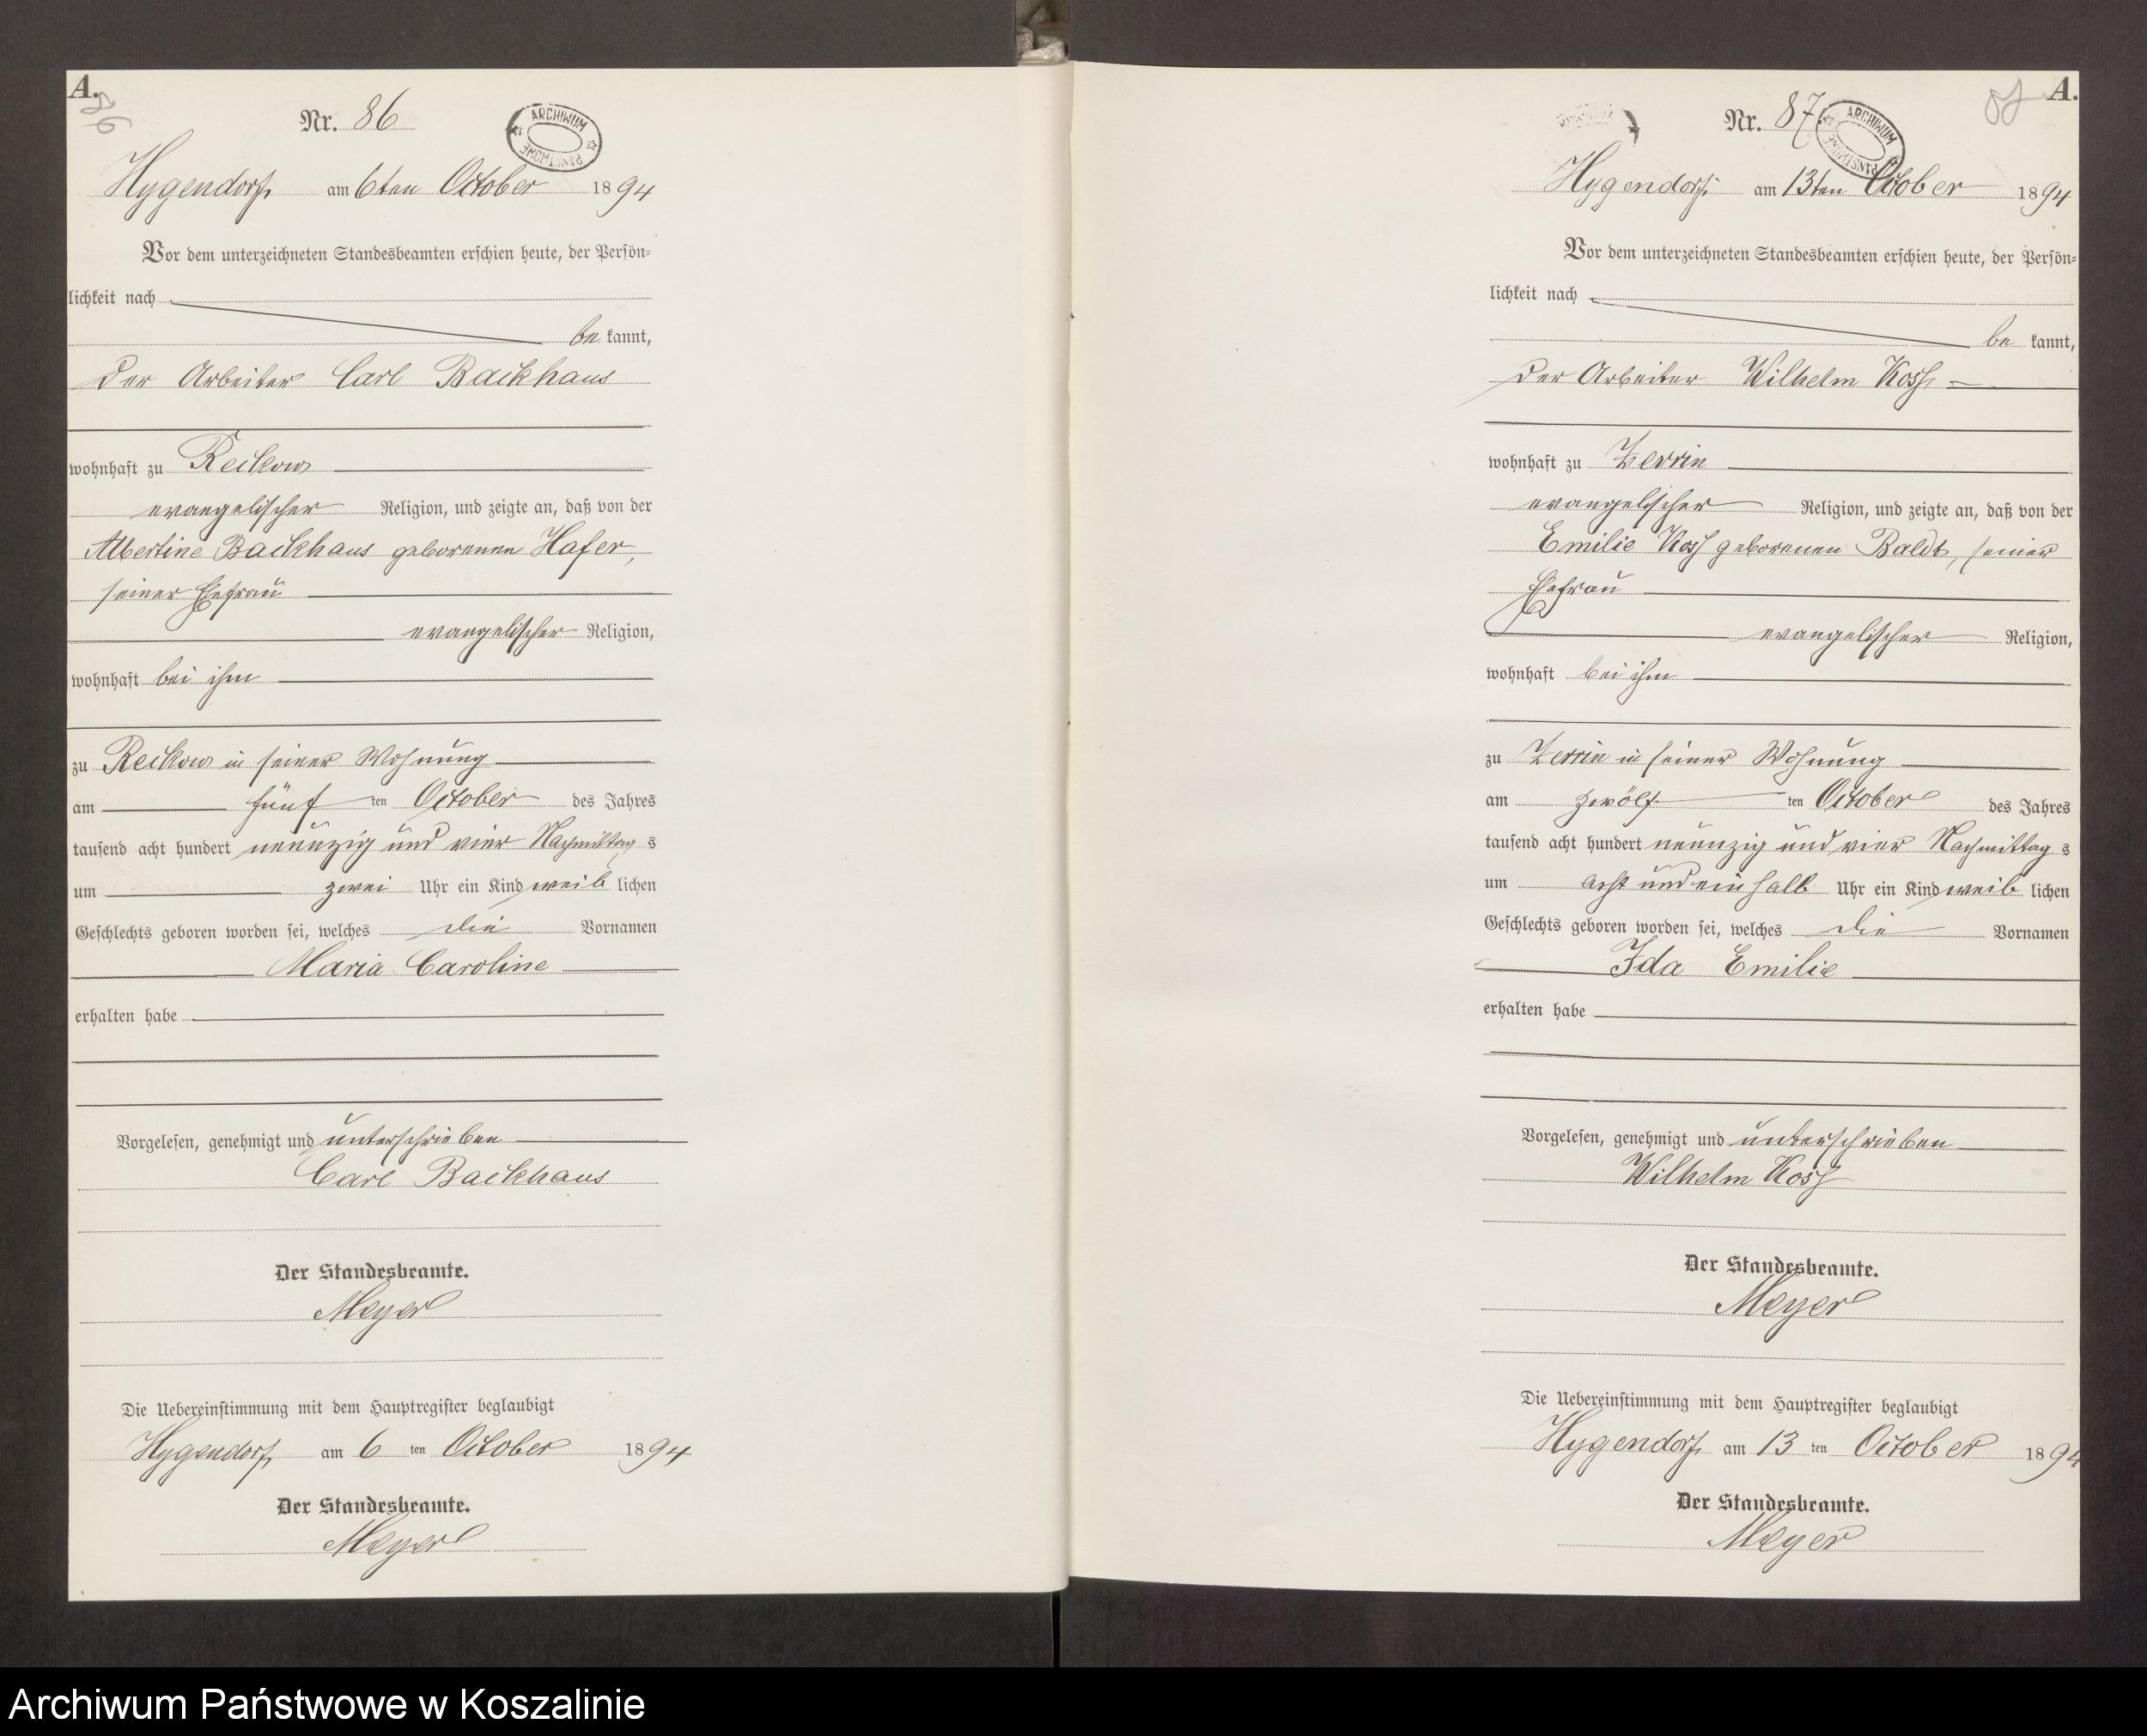 A.
86
Nr. 86
ARCHIWUM PAŃSTWOWE
Hygendorf am 6ten October 1894
Vor dem unterzeichneten Standesbeamten erschien heute, der Persön-
lichkeit nach
be kannt,
der Arbeiter Carl Backhaus
wohnhaft zu Reckow
evangelischer Religion, und zeigte an, daß von der
Albertine Backhaus geborenen Hafer,
seiner Ehefrau
evangelischer Religion,
wohnhaft bei ihm
zu Reckow in seiner Wohnung
am fünf ten October des Jahres
tausend acht hundert neunzig und vier Nachmittag s
um zwei Uhr ein Kind weib lichen
Geschlechts geboren worden sei, welches die Vornamen
Maria Caroline
erhalten habe
Vorgelesen, genehmigt und unterschrieben
Carl Backhaus
Der Standesbeamte.
Meyer
Die Uebereinstimmung mit dem Hauptregister beglaubigt
Hygendorf am 6 ten October 1894
Der Standesbeamte.
Meyer
A.
Nr. 87
ARCHIWUM PAŃSTWOWE
Hygendorf am 13ten October 1894
Vor dem unterzeichneten Standesbeamten erschien heute, der Persön-
lichkeit nach
be kannt,
der Arbeiter Wilhelm Koss
wohnhaft zu Zerrin
evangelischer Religion, und zeigte an, daß von der
Emilie Koss geborenen Baldt, seiner
Ehefrau
evangelischer Religion,
wohnhaft bei ihm
zu Zerrin in seiner Wohnung
am zwölf ten October des Jahres
tausend acht hundert neunzig und vier Nachmittag s
um acht und ein halb Uhr ein Kind weib lichen
Geschlechts geboren worden sei, welches die Vornamen
Ida Emilie
erhalten habe
Vorgelesen, genehmigt und unterschrieben
Wilhelm Koss
Der Standesbeamte.
Meyer
Die Uebereinstimmung mit dem Hauptregister beglaubigt
Hygendorf am 13 ten October 1894
Der Standesbeamte.
Meyer
Archiwum Państwowe w Koszalinie